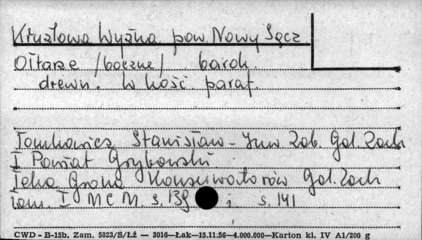 Krużlowa Wyżna pow. Nowy Sącz
Ołtarze /boczne/ barok.
drewn. w kość. paraf.
Tomkowicz Stanisław - Inw. Zab. Gal. Zach
I Powiat Grybowski
Teka Grona Konserwatorów Gal. Zach
tom. I MCM. s. 139 i s. 141
CWD - B-15b. Zam. 5823/S/Lż — 3016—Łak—15.11.56—4.000.000—Karton kl. IV A1/200 g